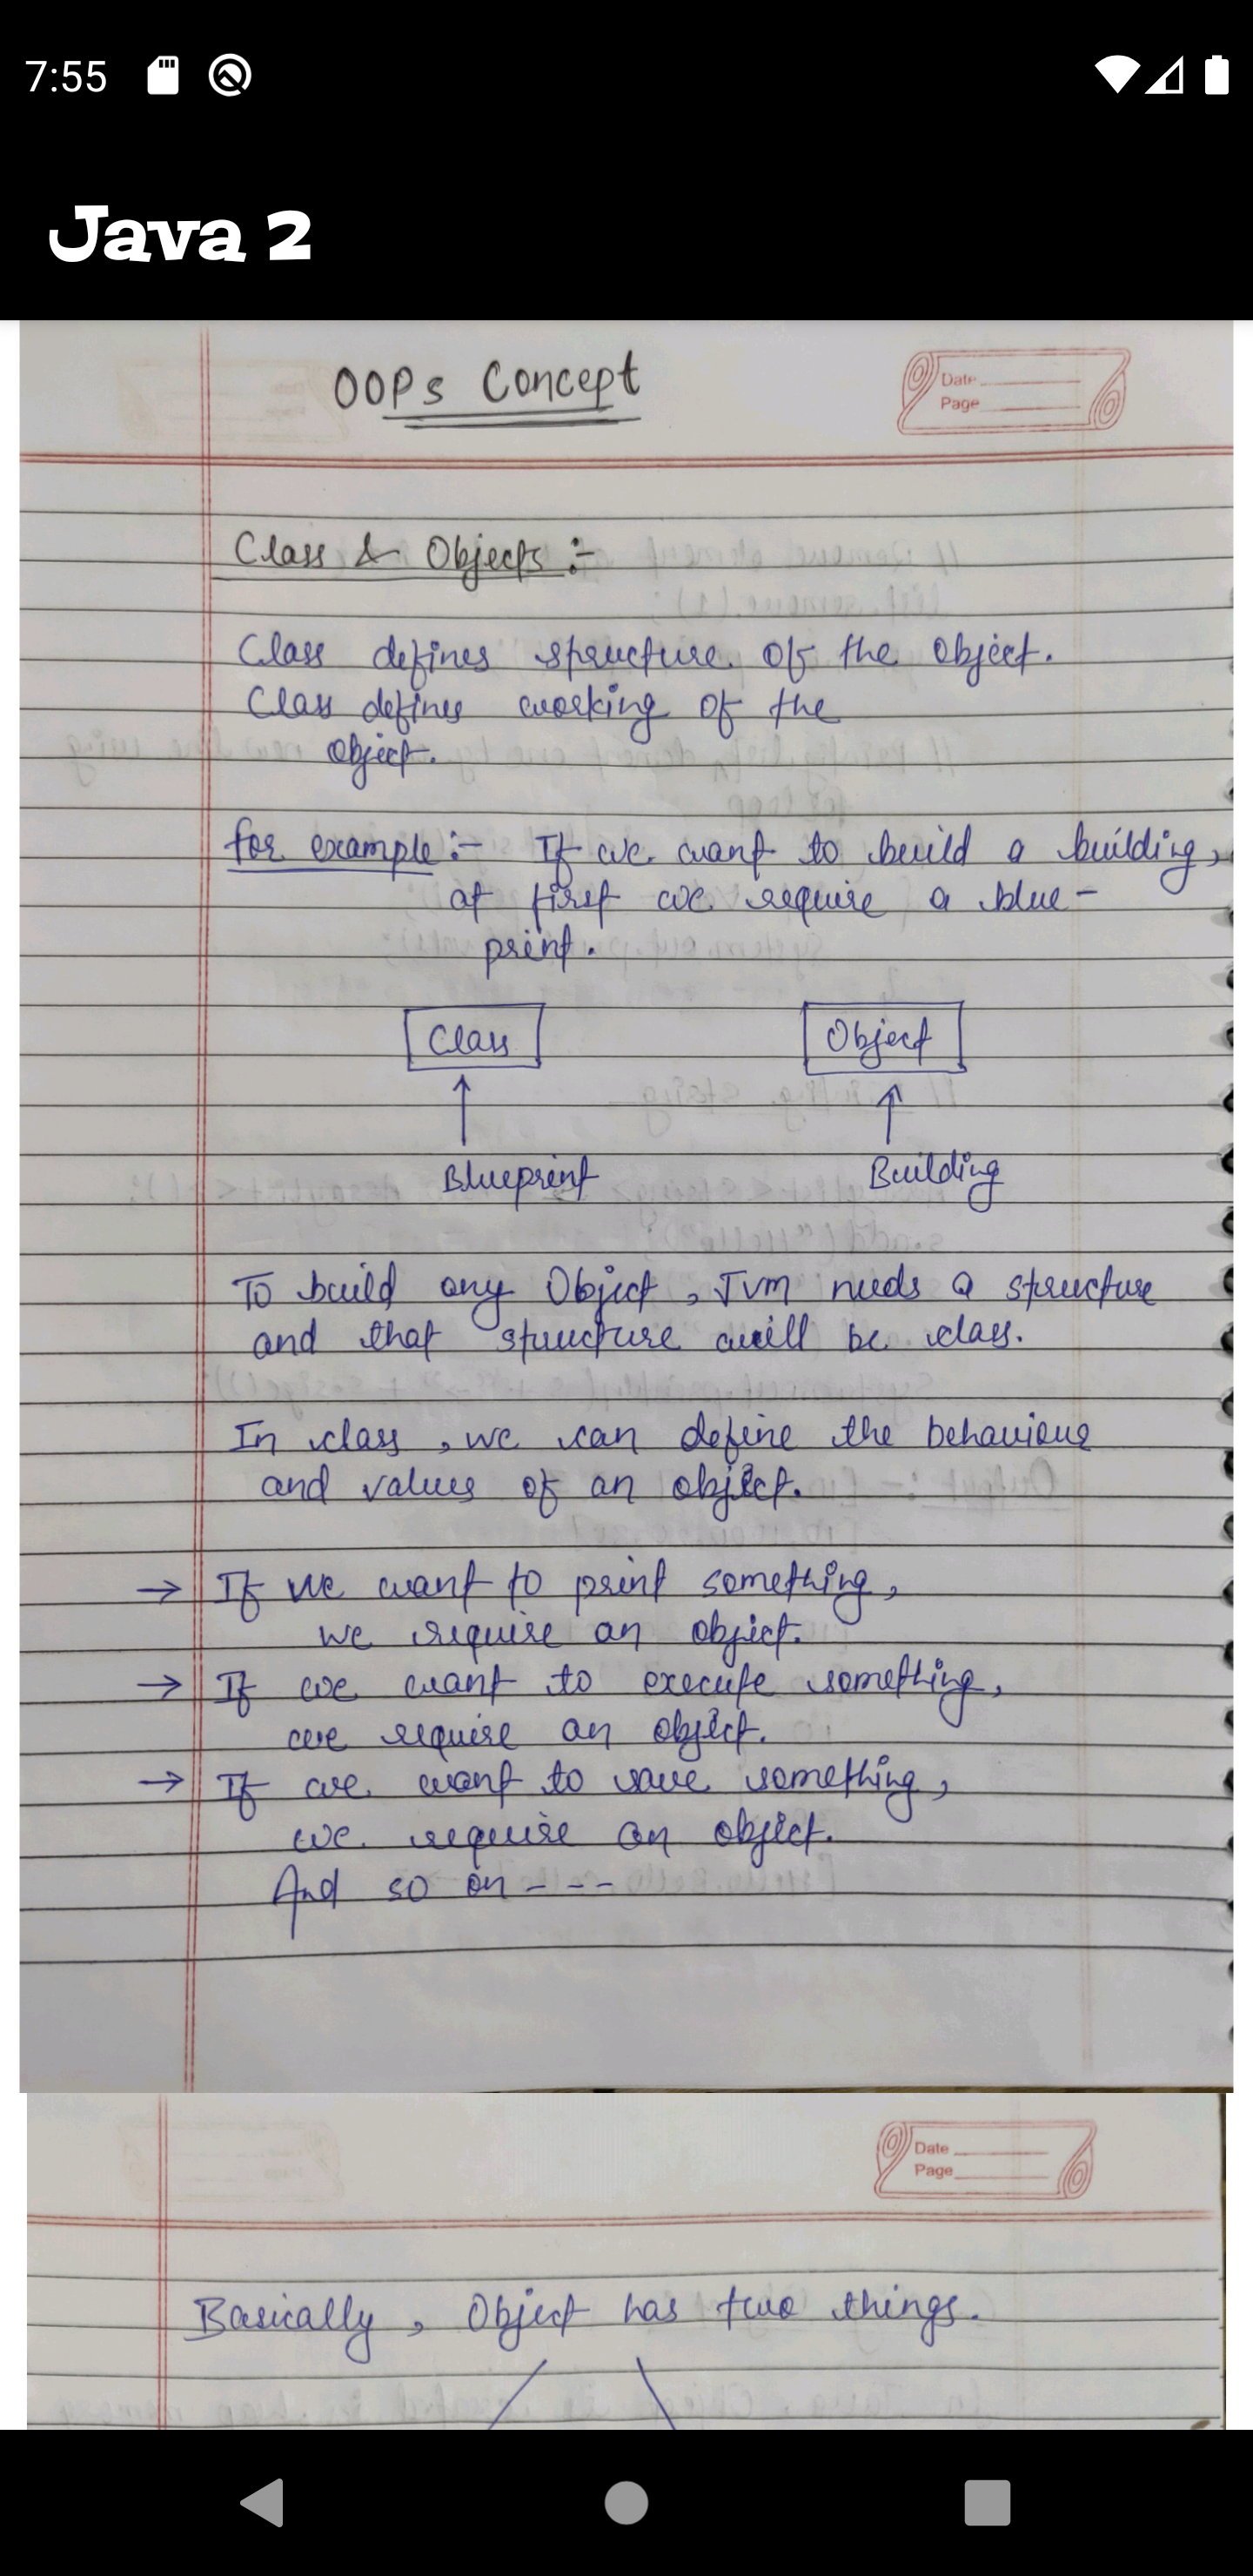 7:55
Java 2
OOPs Concept
Date
Page
Class & Objects :-
Class defines structure of the object.
Class defines working of the
object.
for example :- If we want to build a building,
at first we require a blue-
print.
Class Object
Blueprint Building
To build any Object, JVM needs a structure
and that structure will be class.
In class, we can define the behaviour
and values of an object.
→ If we want to print something,
we require an object.
→ If we want to execute something,
we require an object.
→ If we want to save something,
we require an object.
And so on ---
Date
Page
Basically, Object has two things.